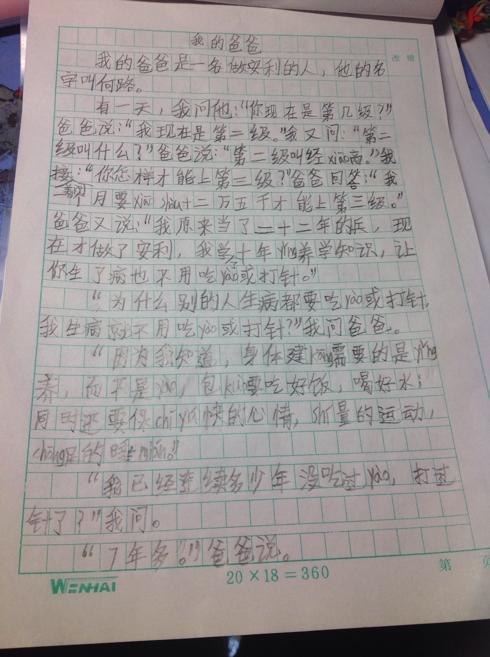 我的爸爸
我的爸爸是一名做安利的人，他的名
字叫何路。
有一天，我问他：“你现在是第几级？”
爸爸说：“我现在是第二级。”我又问：“第二
级叫什么？”爸爸说：“第二级叫经xiāo商。”我
接：“你怎样才能上第三级？”爸爸回答：“我
月要二万五千才能上第三级。”
爸爸又说：“我原来当了二十二年的兵，现
在才做了安利，我学十年yíng养学知识，让
你生了病也不用吃yào或打针。”
“为什么别的人生病都要吃yào或打针，
我生病却不用吃yào或打针？”我问爸爸。
“因为我知道，身体建kāng需要的是yíng
养，而不是yào，包kuò要吃好饭，喝好水；
同时还要保chí愉快的心情，的运动，
chōng足的睡mián。”
“我已经连续多少年没吃过yào，打过
针了？”我问。
“7年多。”爸爸说。
WENHAI
20×18=360
第 页